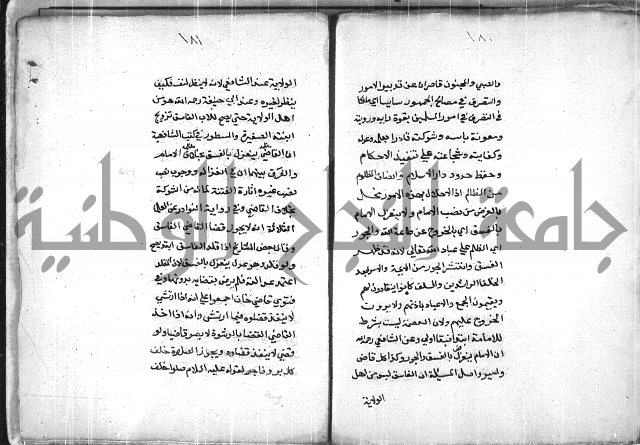 ١٨٠
والصبي والمجنون قاصران عن تدبير الامور
والتصرف في مصالح الجمهور سايسا اي مالكا
في التصرف في امور المسلمين بقوة رايه ورويته
ومعونة باسه وشوكته قادرا بعلمه وعدله
وكفايته وشجاعته علي تنفيذ الاحكام
وحفظ حدود دار الاسلام وانصاف المظلوم
من الظالم اذ الاخلال بهذه الامور مخل
بالغرض من نصب الامام ولا ينعزل الامام
بالفسق اي بالخروج عن طاعة الله والجور
اي الظلم علي عباد الله تعالي لانه قد ظهر
الفسق وانتشر الجور من الايمة والامرا بعد
الخلفا الراشدين والسلف كانوا ينقادون لهم
ويقيمون الجمع والاعياد باذنهم ولا يرون
الخروج عليهم ولان العصمة ليست بشرط
للامامة ابتدا فبقا اولي وعن الشافعي رحمه الله
ان الامام ينعزل بالفسق والجور وكذا كل قاض
وامير واصل المسيلة ان الفاسق ليس من اهل
الولاية
١٨١
الولاية عند الشافعي لانه لا ينظر لنفسه فكيف
ينظر لغيره وعند ابي حنيفة رحمه الله هو من
اهل الولاية حتي يصح للاب الفاسق تزويج
ابنته الصغيرة والمسطور في كتب الشافعية
ان القاضي ينعزل بالفسق بخلاف الامام
والفرق بينهما ان في انعزاله ووجوب نصب
غيره اثارة الفتنة لما له من الشوكة
بخلاف القاضي وفي رواية النوادر عن العلما
الثلاثة انه لا يجوز قضا القاضي الفاسق
وقال بعض المشايخ اذا قلد الفاسق ابتدا يصح
ولو قلد وهو عدل ينعزل بالفسق لان المقلد
اعتمد عدالته فلم يرض بقضايه بدونها وفي
فتاوي قاضي خان اجمعوا علي انه اذا ارتشي
لا ينفذ قضاوه فيما ارتشي وانه اذا اخذ
القاضي القضا بالرشوة لا يصير قاضيا ولو
قضي لا ينفذ قضاوه ويجوز الصلاة خلف
كل بر وفاجر لقوله عليه السلام صلوا خلف
جامعة النجاح الوطنية